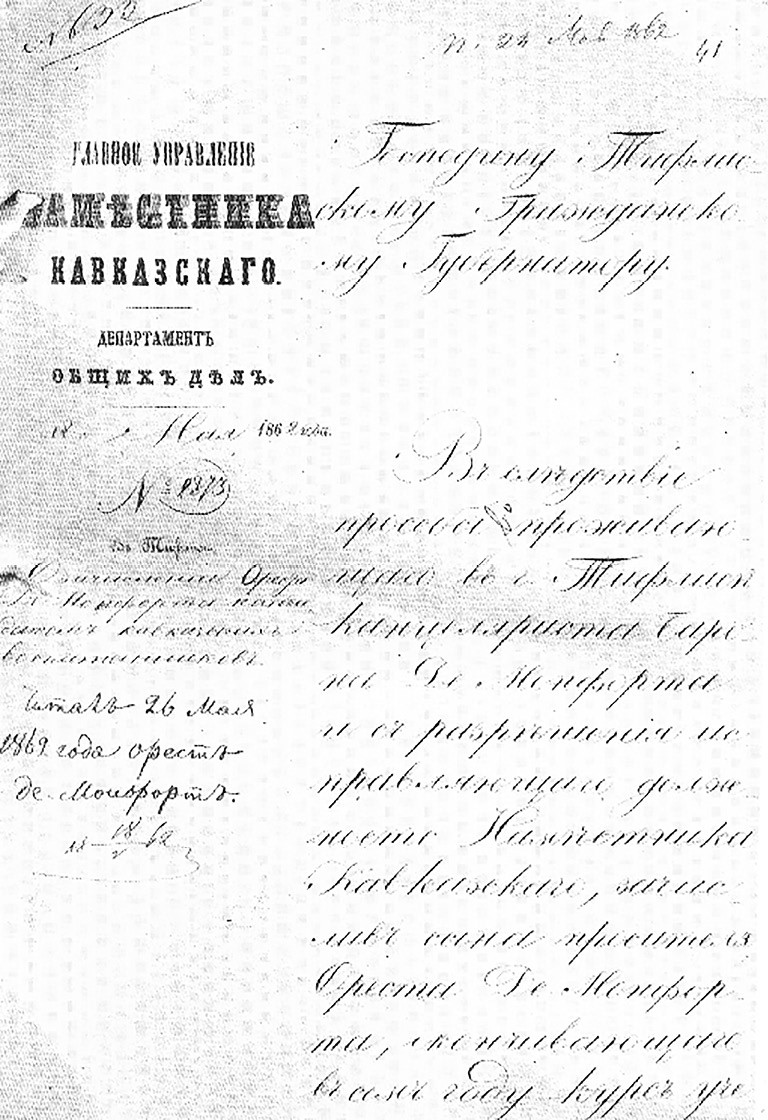 № 632
п. 24 Мая 1862
41
ГЛАВНОЕ УПРАВЛЕНІЕ
НАМѢСТНИКА
КАВКАЗСКАГО.
ДЕПАРТАМЕНТЪ
ОБЩИХЪ ДѢЛЪ.
18 Мая 1862 года.
№ 1873
гъ Тифлисъ.
О зачисленіи Орест
Де Монфорта канди
датомъ кавказскихъ
воспитанниковъ.
читалъ 26 Мая
1862 года Орестъ
де Монфортъ.
Господину Тифлис
скому Гражданско
му Губернатору.
Въ слѣдствіе
прозьбы проживаю
щаго въ г. Тифлисѣ
канцеляриста Баро
на Де Монфорта
и съ разрѣшенія ис
правляющаго долж
ность Намѣстника
Кавказскаго, зачис
ливъ сына просителя
Ореста Де Монфор
та, оканчивающаго
въ семъ году курсъ уче